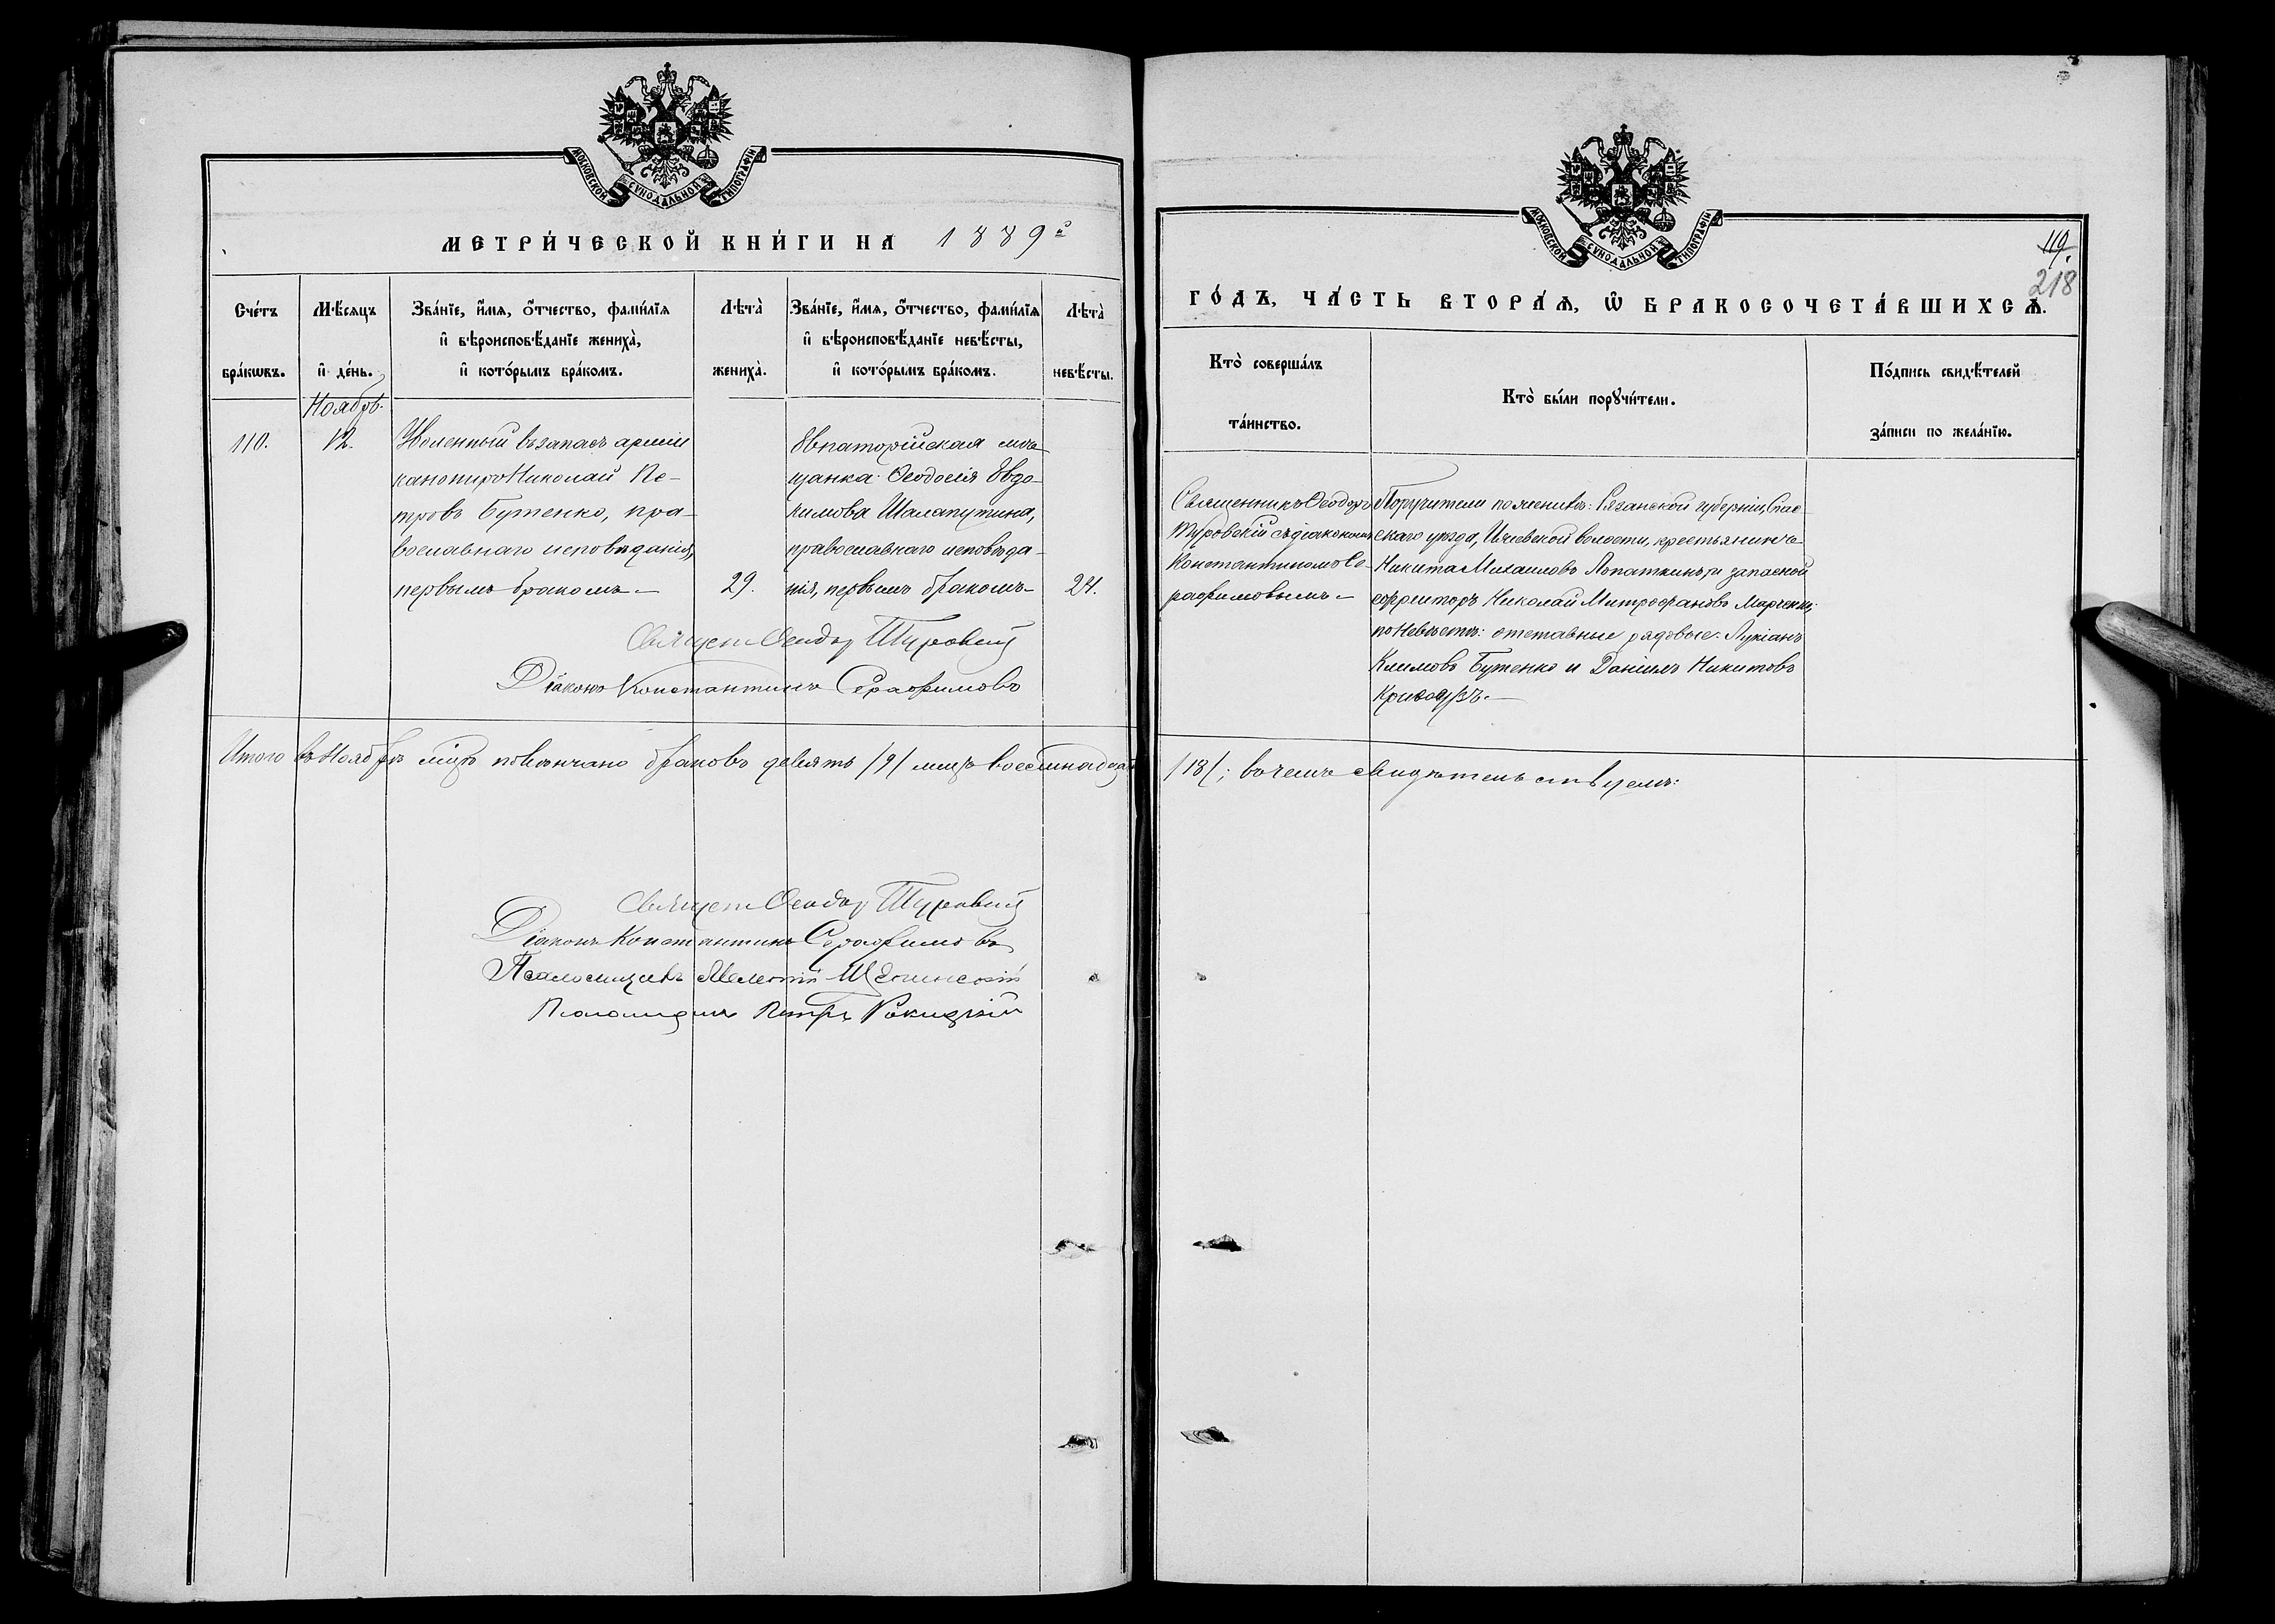 МОСКОВСКОЙ СУНОДАЛЬНОЙ ТИПОГРАФІИ
МЕТРИ́ЧЕСКОЙ КНИ́ГИ НА 1889 г
Сче́тъ бра́кѡвъ.
Мѣ́сяцъ и҆ де́нь.
Зва́нїе, и҆́мя, ѻ҆́тчество, фами́лїя
и҆ вѣроисповѣ́данїе жениха̀,
и҆ кото́рымъ бра́комъ.
Лѣта̀ жениха̀.
Зва́нїе, и҆́мя, ѻ҆́тчество, фами́лїя
и҆ вѣроисповѣ́данїе невѣ́сты,
и҆ кото́рымъ бра́комъ.
Лѣта̀ невѣ́сты.
Ноябрь.
110.
12.
Уволенный въ запасъ арміи
канониръ Николай Пе-
тровъ Бутенко, пра-
вославнаго исповѣданія,
первымъ бракомъ
29.
Евпаторійская мѣ-
щанка Ѳеодосія Евдо-
кимова Шалапутина,
православнаго исповѣда-
нія, первымъ бракомъ
24.
Священ Ѳеодор Туровскій
Діаконъ Константинъ Серафимовъ
Итого въ Ноябрѣ мцѣ повѣнчано браковъ девять /9/ лицъ восемнадцать
Священ Ѳеодор Туровскій
Діаконъ Константинъ Серафимовъ
Псаломщикъ
Псаломщикъ Петръ Рокицкій
МОСКОВСКОЙ СУНОДАЛЬНОЙ ТИПОГРАФІИ
119.
218
ГО́ДЪ, ЧА́СТЬ ВТОРА́Ѧ, Ѡ҆ БРАКОСОЧЕТА́ВШИХСѦ.
Кто̀ соверша́лъ
та́инство.
Кто̀ бы́ли порꙋчи́тели.
По́дпись свидѣ́телей
за́писи по жела́нїю.
Священникъ Ѳеодоръ
Туровскій съ діакономъ
Константиномъ Се-
рафимовымъ
Поручители по женихѣ: Рязанской губерніи, Спас-
скаго уѣзда, Ижевской волости, крестьянинъ
Никита Михаиловъ Лопаткинъ и запасной
ефрейторъ Николай Митрофановъ Марченко;
по Невѣстѣ: отставные рядовые: Лукіанъ
Климовъ Бутенко и Даніилъ Никитовъ
/18/; въ чемъ свидѣтельствуемъ: